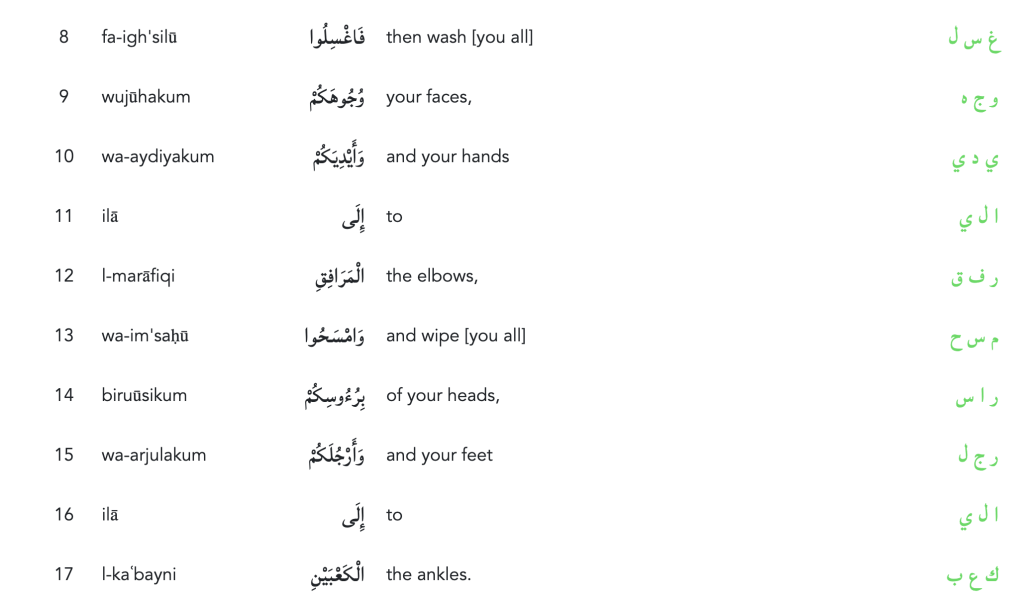 8 fa-igh'silū فَاغْسِلُوا then wash [you all] غ س ل
9 wujūhakum وُجُوهَكُمْ your faces, و ج ه
10 wa-aydiyakum وَأَيْدِيَكُمْ and your hands ي د ي
11 ilā إِلَى to ا ل ي
12 l-marāfiqi الْمَرَافِقِ the elbows, ر ف ق
13 wa-im'saḥū وَامْسَحُوا and wipe [you all] م س ح
14 biruūsikum بِرُءُوسِكُمْ of your heads, ر ا س
15 wa-arjulakum وَأَرْجُلَكُمْ and your feet ر ج ل
16 ilā إِلَى to ا ل ي
17 l-kaʿbayni الْكَعْبَيْنِ the ankles. ك ع ب